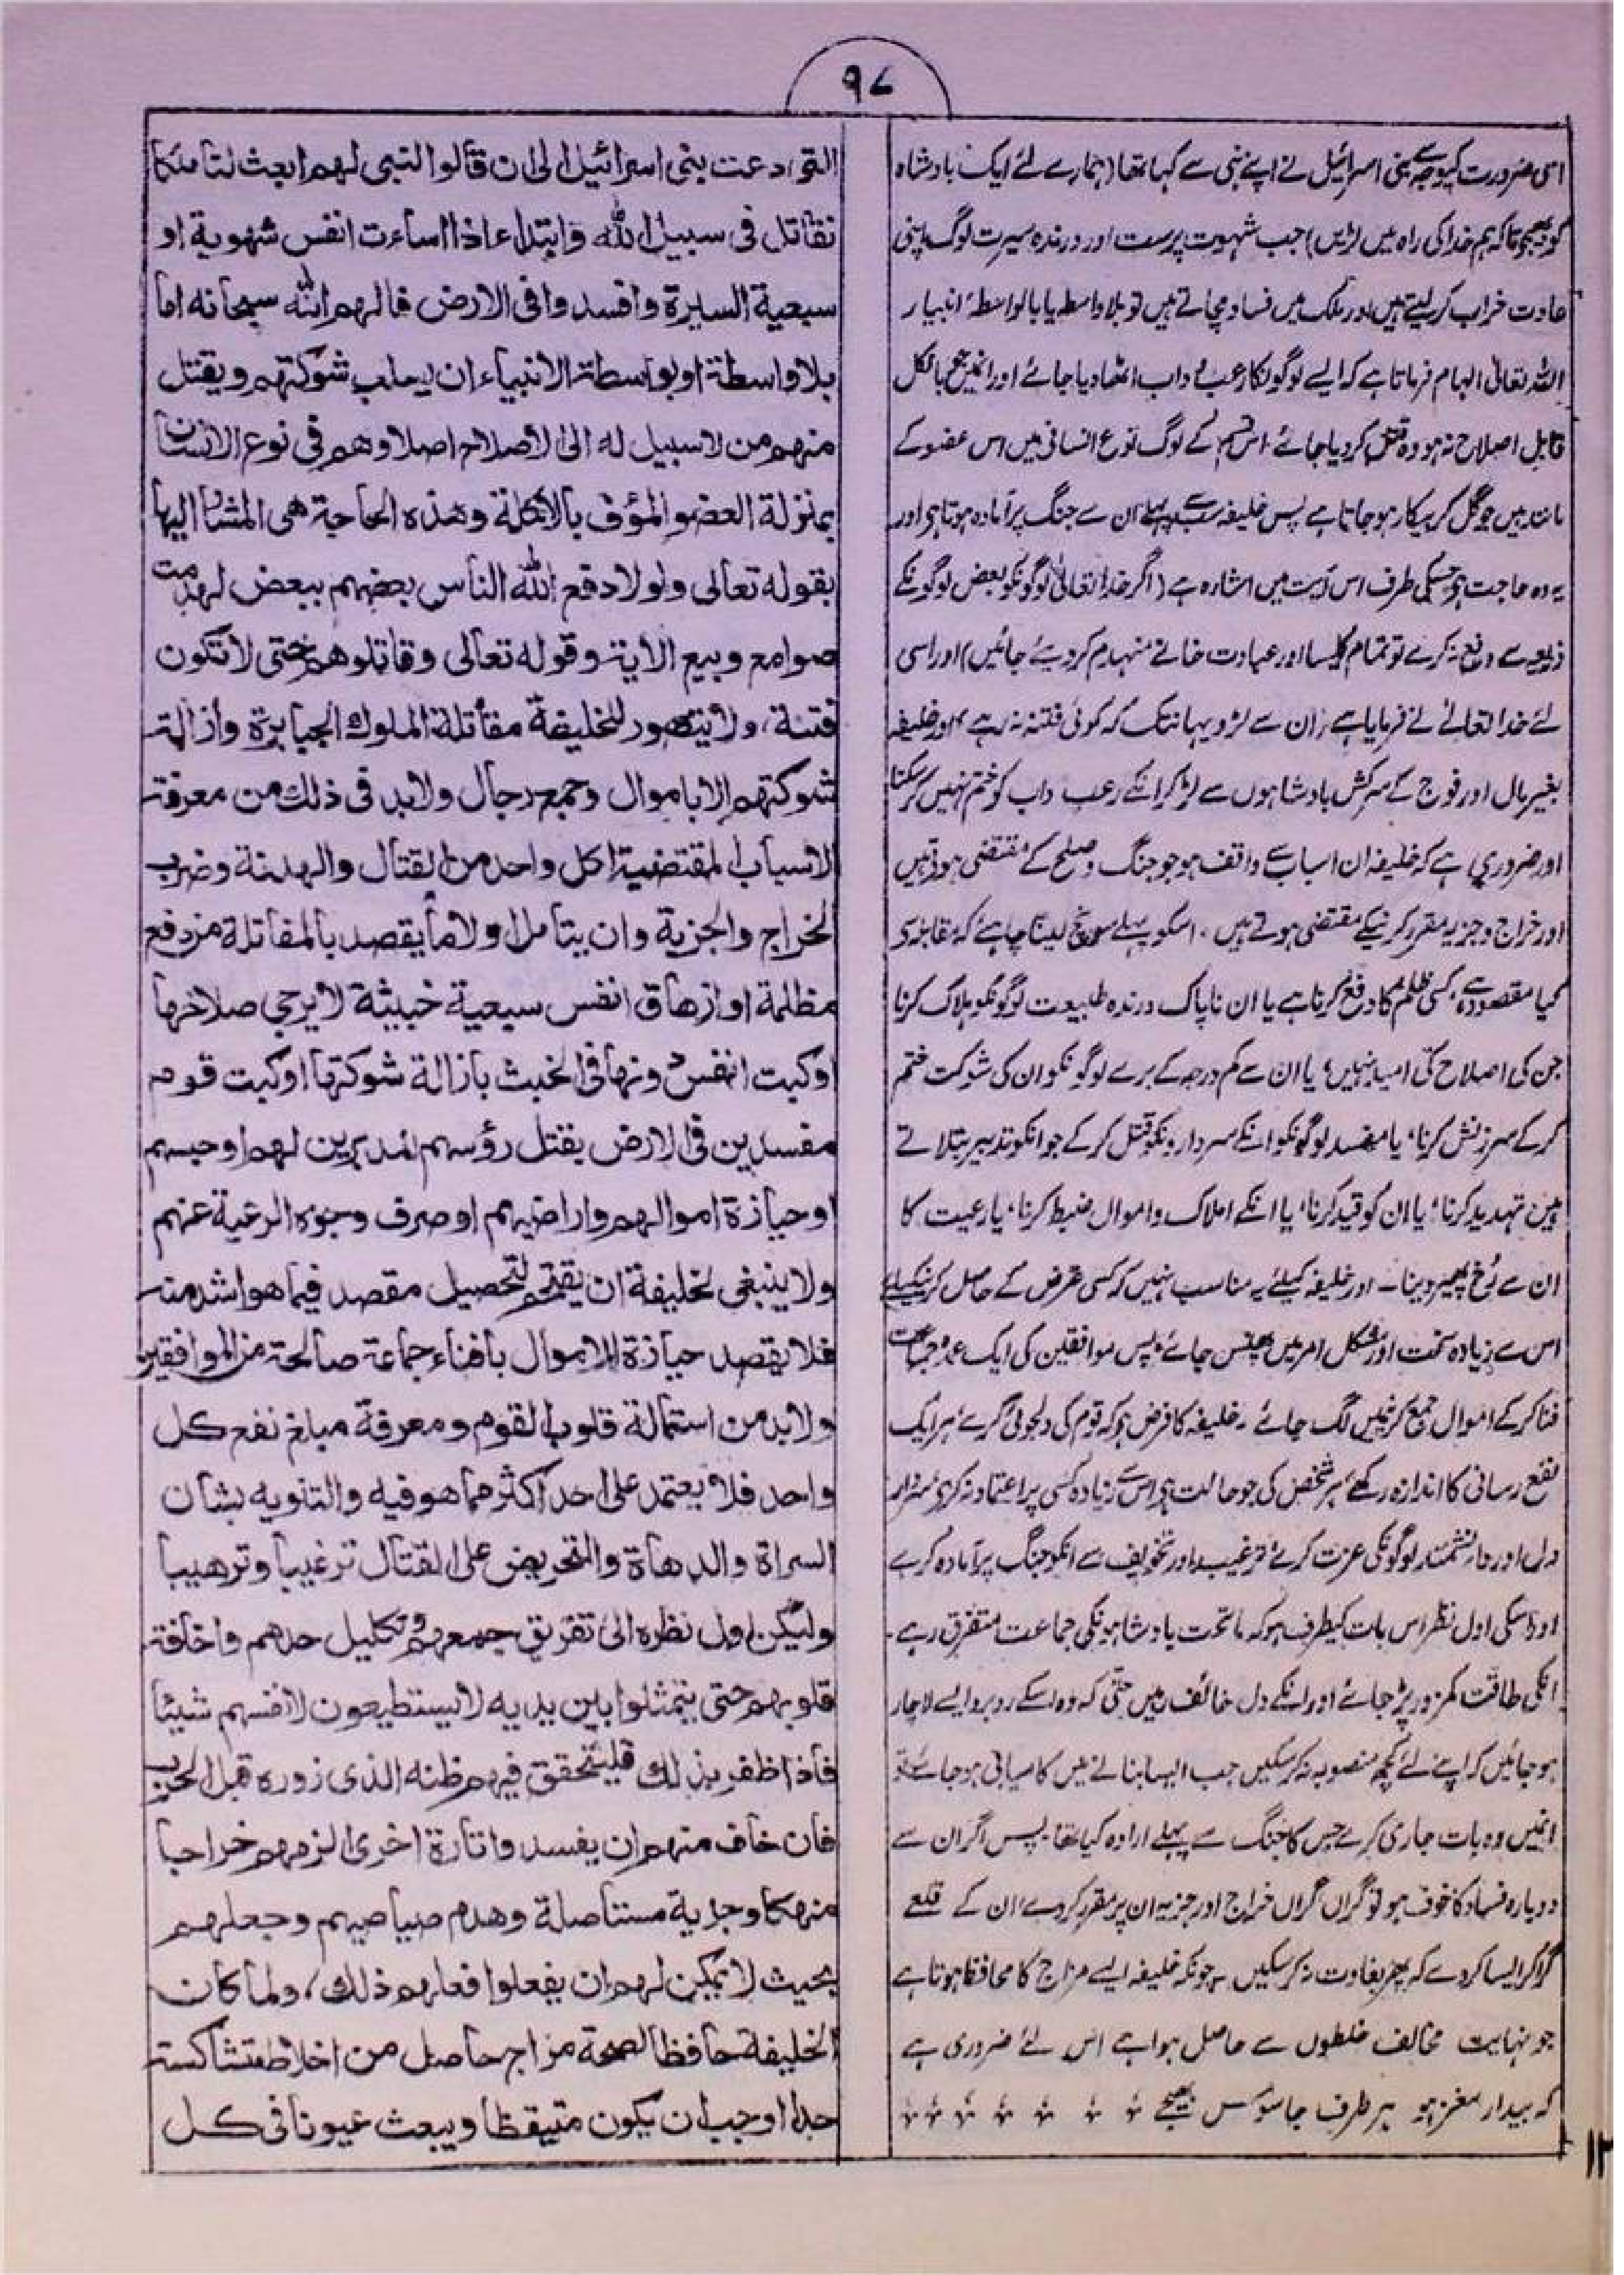 ۹۷
اسی ضرورت کیوجہ سے بنی اسرائیل نے اپنے نبی سے کہا تھا (ہمارے لئے ایک بادشاہ
کو بھیجو تاکہ ہم خدا کی راہ میں لڑیں) جب شہوت پرست اور درندہ سیرت لوگ اپنی
عادت خراب کر لیتے ہیں اور ملک میں فساد مچاتے ہیں تو بلاواسطہ یا بالواسطۂ انبیار
اللہ تعالیٰ الہام فرماتا ہے کہ ایسے لوگونکا رعب داب اٹھا دیا جائے اور انمیں جو بالکل
قابل اصلاح نہ ہو وہ قتل کر دیا جائے اس قسم کے لوگ نوع انسانی میں اس عضو کے
مانند ہیں جو گل کر بیکار ہو جاتا ہے پس خلیفہ سب سے پہلے ان سے جنگ پر آمادہ ہوتا ہے اور
یہ وہ حاجت ہے جسکی طرف اس آیت میں اشارہ ہے (اگر خدا تعالیٰ لوگونکو بعض لوگونکے
ذریعہ سے دفع نہ کرے تو تمام کلیسا اور عبادت خانے منہدم کر دیئے جائیں) اور اسی
لئے خدا تعالے نے فرمایا ہے (ان سے لڑو یہانتک کہ کوئی فتنہ نہ رہے) اور خلیفہ
بغیر مال اور فوج کے سرکش بادشاہوں سے لڑ کر انکے رعب داب کو ختم نہیں کر سکتا
اور ضروری ہے کہ خلیفہ ان اسباب سے واقف ہو جو جنگ و صلح کے مقتضی ہوتے ہیں
اور خراج و جزیہ مقرر کرنیکے مقتضی ہوتے ہیں ۔ اسکو پہلے سوچ لینا چاہئے کہ مقابلہ سے
کیا مقصود ہے، کسی ظلم کا دفع کرنا ہے یا ان ناپاک درندہ طبیعت لوگونکو ہلاک کرنا
جن کی اصلاح کی امید نہیں، یا ان سے کم درجہ کے برے لوگونکو ان کی شوکت ختم
کر کے سرزنش کرنا، یا مفسد لوگونکو انکے سردارونکو قتل کر کے جو انکو تدبیر بتلاتے
ہیں تہدید کرنا، یا ان کو قید کرنا، یا انکے املاک و اموال ضبط کرنا، یا رعیت کا
ان سے رُخ پھیر دینا ۔ اور خلیفہ کیلئے یہ مناسب نہیں کہ کسی غرض کے حاصل کرنیکیلئے
اس سے زیادہ سخت اور مشکل امر میں پھنس جائے، پس موافقین کی ایک عمدہ جماعت
فنا کر کے اموال جمع کرنیمیں لگ جائے ۔ خلیفہ کا فرض ہے کہ قوم کی دلجوئی کرے، ہر ایک
نفع رسانی کا اندازہ رکھے، ہر شخص کی جو حالت ہے اس سے زیادہ کسی پر اعتماد نہ کرے، سردار
دل اور دانشمند لوگونکی عزت کرے، ترغیب اور تخویف سے انکو جنگ پر آمادہ کرے
اور اسکی اول نظر اس بات کیطرف ہو کہ ماتحت بادشاہونکی جماعت متفرق رہے ۔
انکی طاقت کمزور پڑ جائے اور انکے دل خائف رہیں حتیٰ کہ وہ اسکے روبرو ایسے لاچار
ہو جائیں کہ اپنے لئے کچھ منصوبہ نہ کر سکیں جب ایسا بنانے میں کامیابی ہو جائے، تو
انمیں وہ بات جاری کرے جس کا جنگ سے پہلے ارادہ کیا تھا ۔ پس اگر ان سے
دوبارہ فساد کا خوف ہو تو گراں گراں خراج اور جزیہ ان پر مقرر کر دے، ان کے قلعے
گرا کر ایسا کر دے کہ پھر بغاوت نہ کر سکیں ۔ چونکہ خلیفہ ایسے مزاج کا محافظ ہوتا ہے
جو نہایت مخالف خلطوں سے حاصل ہوا ہے اس لئے ضروری ہے
کہ بیدار مغز ہو ہر طرف جاسوس بھیجے
التی دعت بنی اسرائیل الی ان قالوا لنبی لهم ابعث لنا ملکا
نقاتل فی سبیل الله وابتداء اذا اساءت انفس شهویة او
سبعیة السیرة وافسدوا فی الارض فالهم الله سبحانه اما
بلا واسطة او بواسطة الانبیاء ان یسلب شوکتهم ویقتل
منهم من لا سبیل له الی الاصلاح اصلا وهم فی نوع الانسان
بمنزلة العضو المؤف بالاکلة وهذه الحاجة هی المشار الیها
بقوله تعالی ولولا دفع الله الناس بعضهم ببعض لهدمت
صوامع وبیع الایة وقوله تعالی وقاتلوهم حتی لا تکون
فتنة، ولا یتصور للخلیفة مقاتلة الملوك الجبابرة وازالة
شوکتهم الا باموال وجمع رجال ولابد فی ذلك من معرفة
الاسباب المقتضیة لکل واحد من القتال والهدنة وضرب
الخراج والجزیة وان یتامل اولا ما یقصد بالمقاتلة من دفع
مظلمة او ازهاق انفس سبعیة خبیثة لا یرجی صلاحها
او کبت انفس دونها فی الخبث بازالة شوکتها او کبت قوم
مفسدین فی الارض بقتل رؤسهم المدبرین لهم او حبسهم
او حیازة اموالهم واراضیهم او صرف وجوه الرعیة عنهم
ولا ینبغی لخلیفة ان یقتحم لتحصیل مقصد فیما هو اشد منه
فلا یقصد حیازة الاموال بافناء جماعة صالحة من الموافقین
ولابد من استمالة قلوب القوم ومعرفة مبلغ نفع کل
واحد فلا یعتمد علی احد اکثر مما هو فیه والتنویه بشان
السراة والدهاة والتحریض علی القتال ترغیبا وترهیبا
ولیکن اول نظره الی تفریق جمعهم وتکلیل حدهم واخافة
قلوبهم حتی یتمثلوا بین یدیه لا یستطیعون لانفسهم شیئا
فاذا ظفر بذلك فلیتحقق فیهم ظنه الذی زوره قبل الحرب
فان خاف منهم ان یفسدوا تارة اخری الزمهم خراجا
منهکا وجزیة مستاصلة وهدم صیاصیهم وجعلهم
بحیث لا یمکن لهم ان یفعلوا فعلهم ذلك، ولما کان
الخلیفة حافظا لصحة مزاج حاصل من اخلاط متشاکسة
جدا وجب ان یکون متیقظا ویبعث عیونا فی کل
۱۲